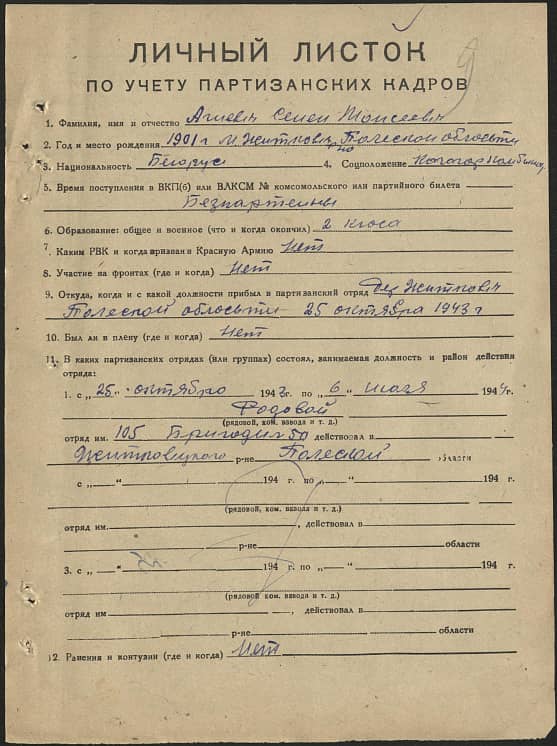 ЛИЧНЫЙ ЛИСТОК
ПО УЧЕТУ ПАРТИЗАНСКИХ КАДРОВ
1. Фамилия, имя и отчество Семен Моисеевич
2. Год и место рождения 1901 г м. Житкович Полеской области
3. Национальность Белорус 4. Соцположение
5. Время поступления в ВКП(б) или ВЛКСМ № комсомольского или партийного билета
Безпартейный
6. Образование: общее и военное (что и когда окончил) 2 класа
7. Каким РВК и когда призван в Красную Армию Нет
8. Участие на фронтах (где и когда) Нет
9. Откуда, когда и с какой должности прибыл в партизанский отряд Житкович
Полеской области 25 октября 1943 г
10. Был ли в плену (где и когда) Нет
11. В каких партизанских отрядах (или группах) состоял, занимаемая должность и район действия
отряда:
1. с „25" октября 1943 г. по „6" 1944 г.
Рядовой
(рядовой, ком. взвода и т. д.)
отряд им. 105 Бригады 50 действовал в
Житковицкого р-не Полеской области
с „—“ 194 г. по „—“ 194 г.
(рядовой, ком. взвода и т. д.)
отряд им. , действовал в
р-не области
3. с „—“ 194 г. по „—“ 194 г.
(рядовой, ком. взвода и т. д.)
отряд им. , действовал в
р-не области
12. Ранения и контузии (где и когда) Нет